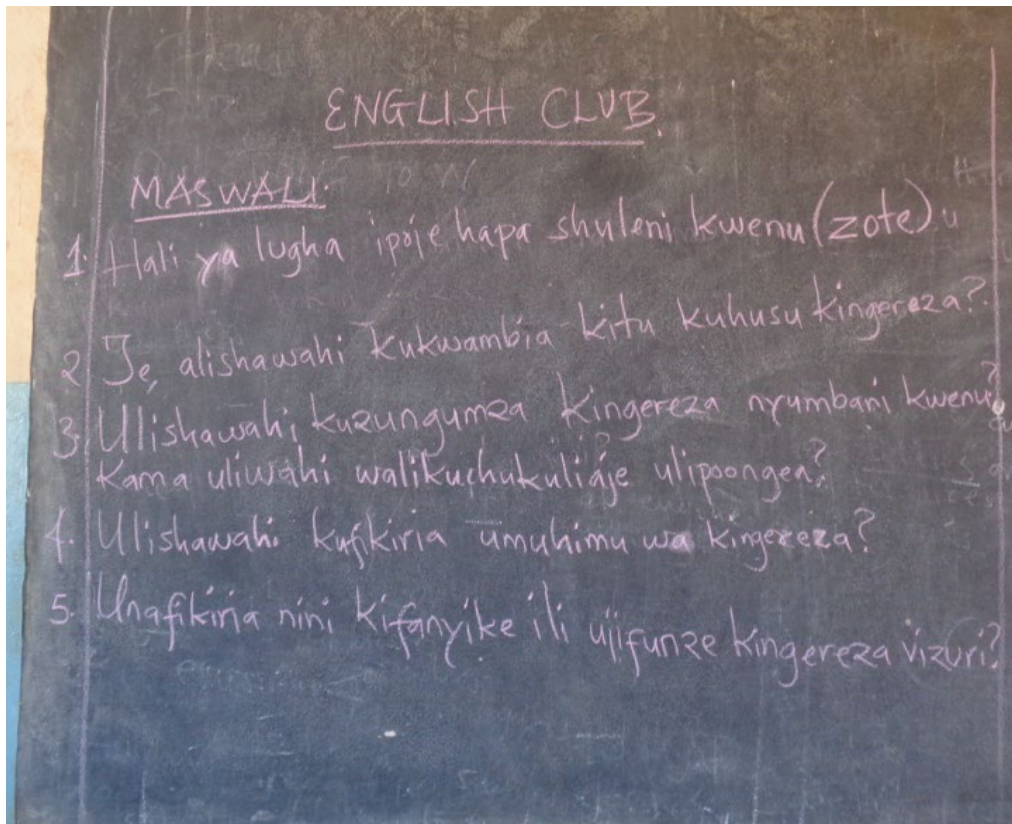 ENGLISH CLUB.
MASWALI.
1. Hali ya lugha ipoje hapa shuleni kwenu (zote).
2 Je, alishawahi kukwambia kitu kuhusu kingereza?
3. Ulishawahi kuzungumza kingereza nyumbani kwenu?
Kama uliwahi walikuchukuliaje ulipoongea?
4. Ulishawahi kufikiria umuhimu wa kingereza?
5. Unafikiria nini kifanyike ili ujifunze kingereza vizuri?